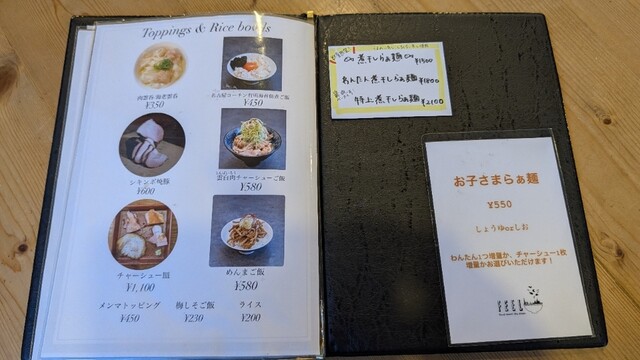 Toppings & Rice bowls
肉雲呑・海老雲呑
¥350
¥450
シキンボ晩餐
¥600
雲白肉チャーシューご飯
¥580
チャーシュー皿
¥1,100
めんまご飯
¥580
メンマトッピング
¥450
梅しそご飯
¥230
ライス
¥200
煮干しらぁ麺
¥1500
わんたん煮干しらぁ麺 ¥1800
特上煮干しらぁ麺 ¥2100
お子さまらぁ麺
¥550
しょうゆorしお
わんたん1つ増量か、チャーシュー1枚
増量かお選びいただけます！
FEEL